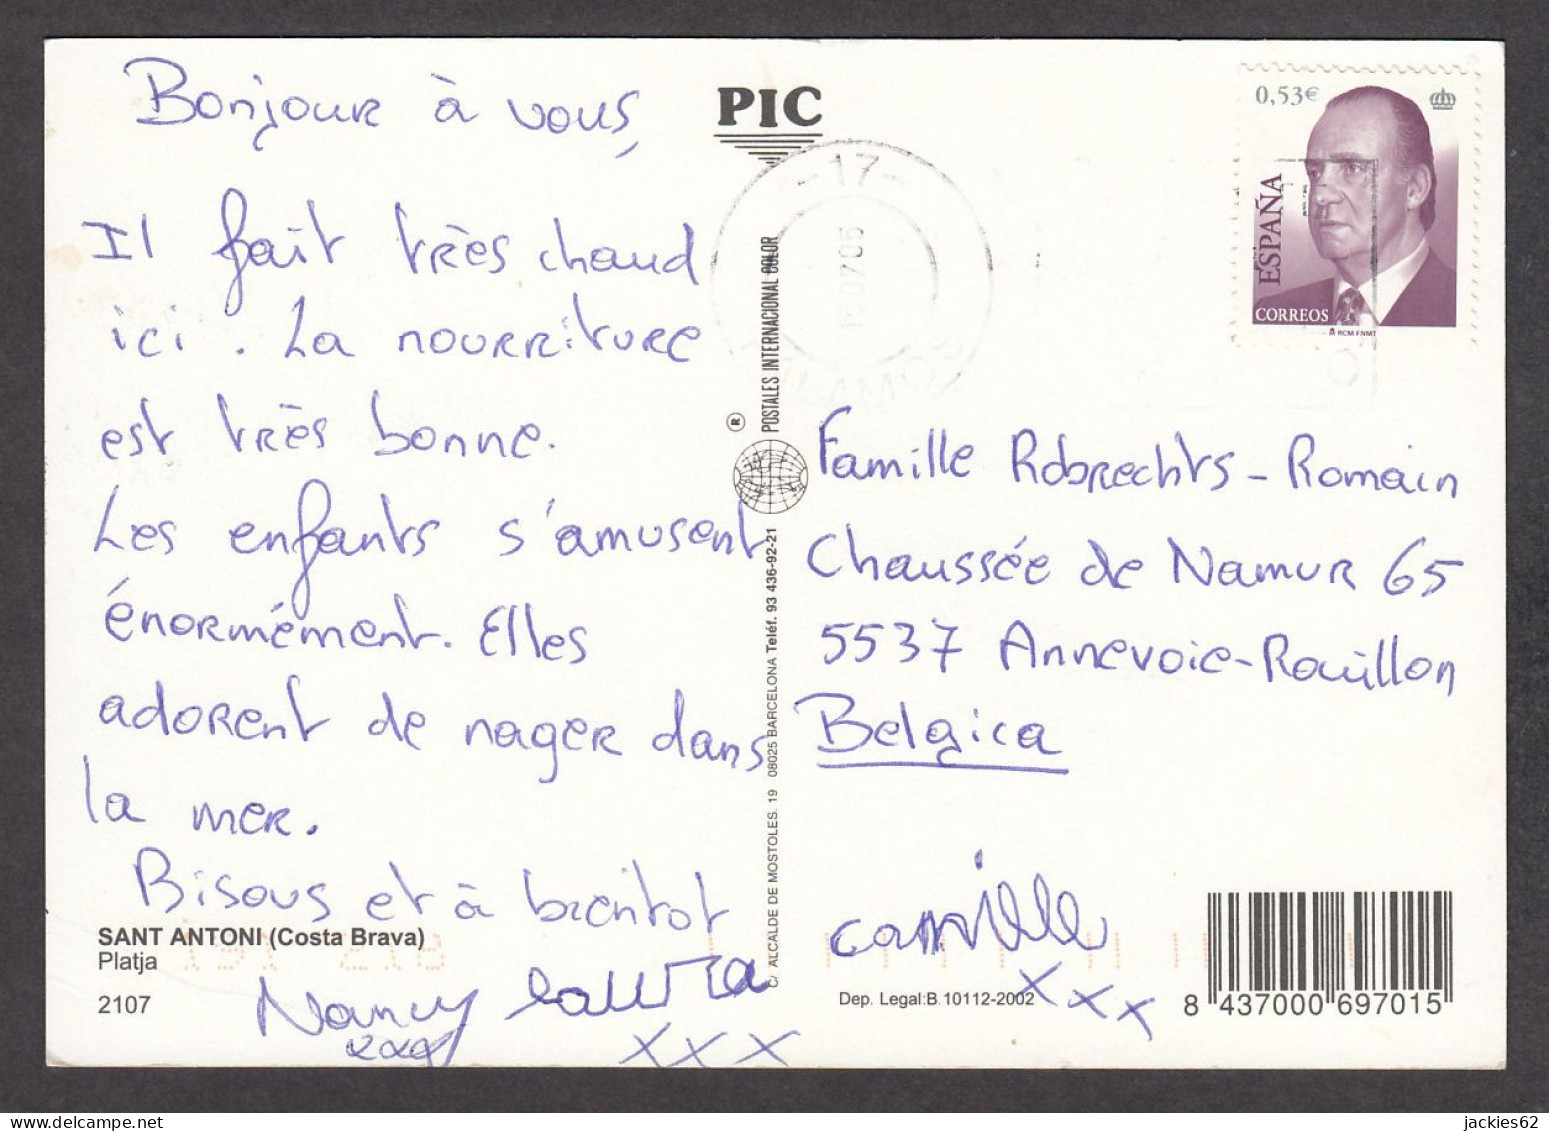 Bonjour à vous,
Il fait très chaud
ici. La nourriture
est très bonne.
Les enfants s'amusent
énormément. Elles
adorent de nager dans
la mer.
Bisous et à bientot
Nancy Laura camille
xxx xxx
SANT ANTONI (Costa Brava)
Platja
2107
PIC
-17-
POSTALES INTERNACIONAL COLOR
®
C/ ALCALDE DE MOSTOLES. 19 08025 BARCELONA Teléf. 93 436-92-21
0,53€
ESPAÑA
CORREOS
RCM FNMT
Famille Robrechts-Romain
Chaussée de Namur 65
5537 Annevoie-Rouillon
Belgica
Dep. Legal:B.10112-2002
8 437000 697015
jackies62